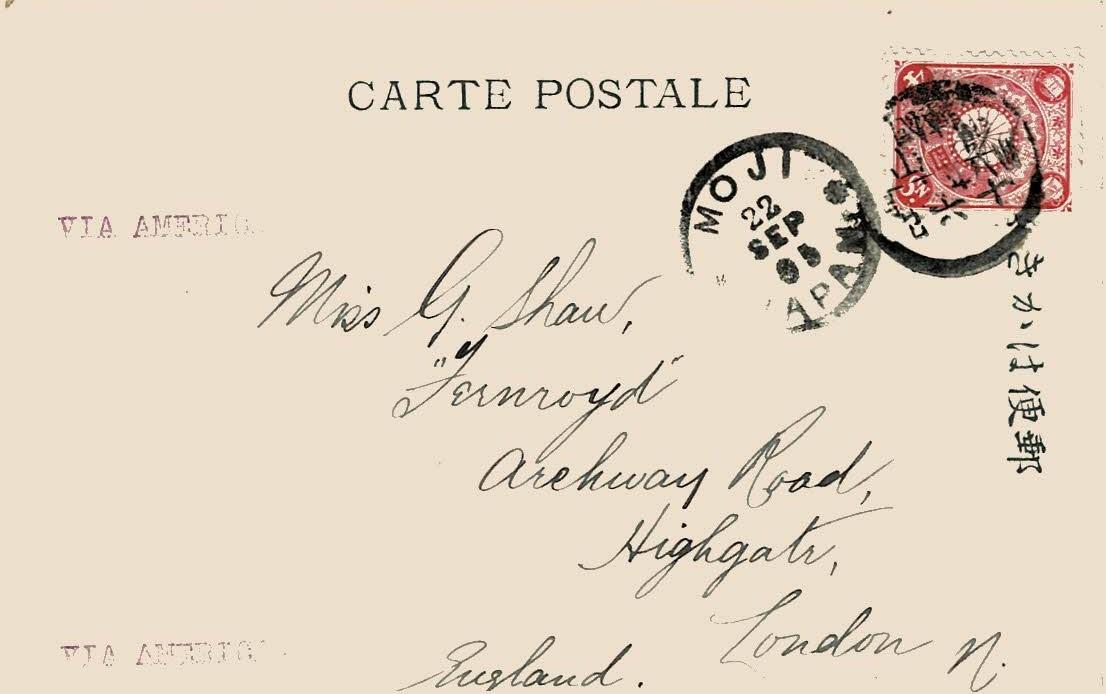 CARTE POSTALE
VIA AMERIC
MOJI
22
SEP
05
APAN
郵便はかき
Miss G. Shaw,
"Fernroyd"
Archway Road,
Highgate,
London N.
England.
VIA AMERIC